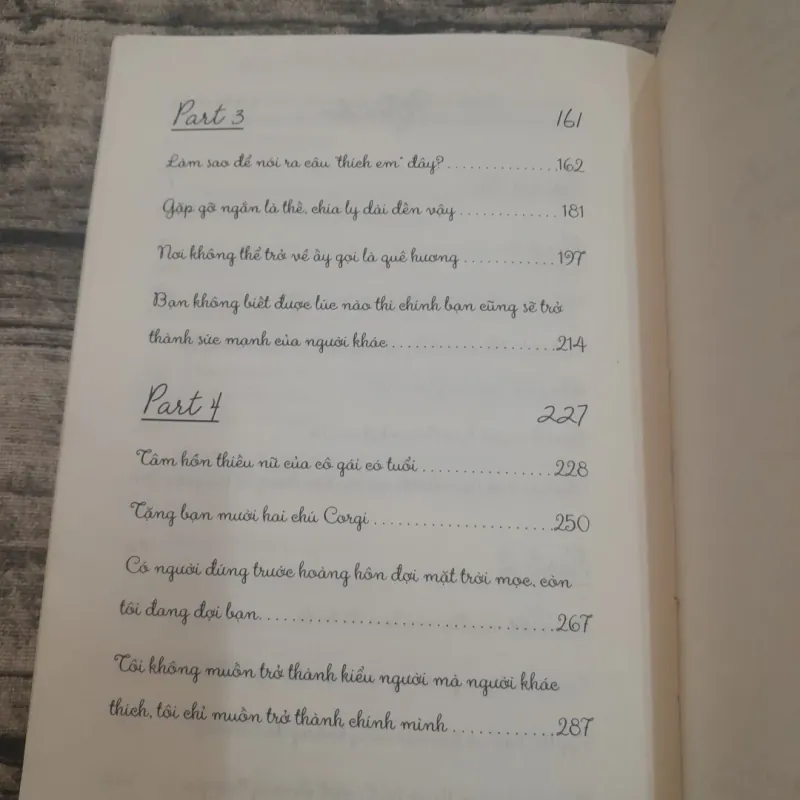 Part 3 161
Làm sao để nói ra câu "thích em" đây? ............162
Gặp gỡ ngắn là thế, chia ly dài đến vậy ............. 181
Nơi không thể trở về ấy gọi là quê hương ............197
Bạn không biết được lúc nào thì chính bạn cũng sẽ trở
thành sức mạnh của người khác .....................214
Part 4 227
Tâm hồn thiếu nữ của cô gái có tuổi .................228
Tặng bạn mười hai chú Corgi ........................250
Có người đứng trước hoàng hôn đợi mặt trời mọc, còn
tôi đang đợi bạn.....................................267
Tôi không muốn trở thành kiểu người mà người khác
thích, tôi chỉ muốn trở thành chính mình .............287